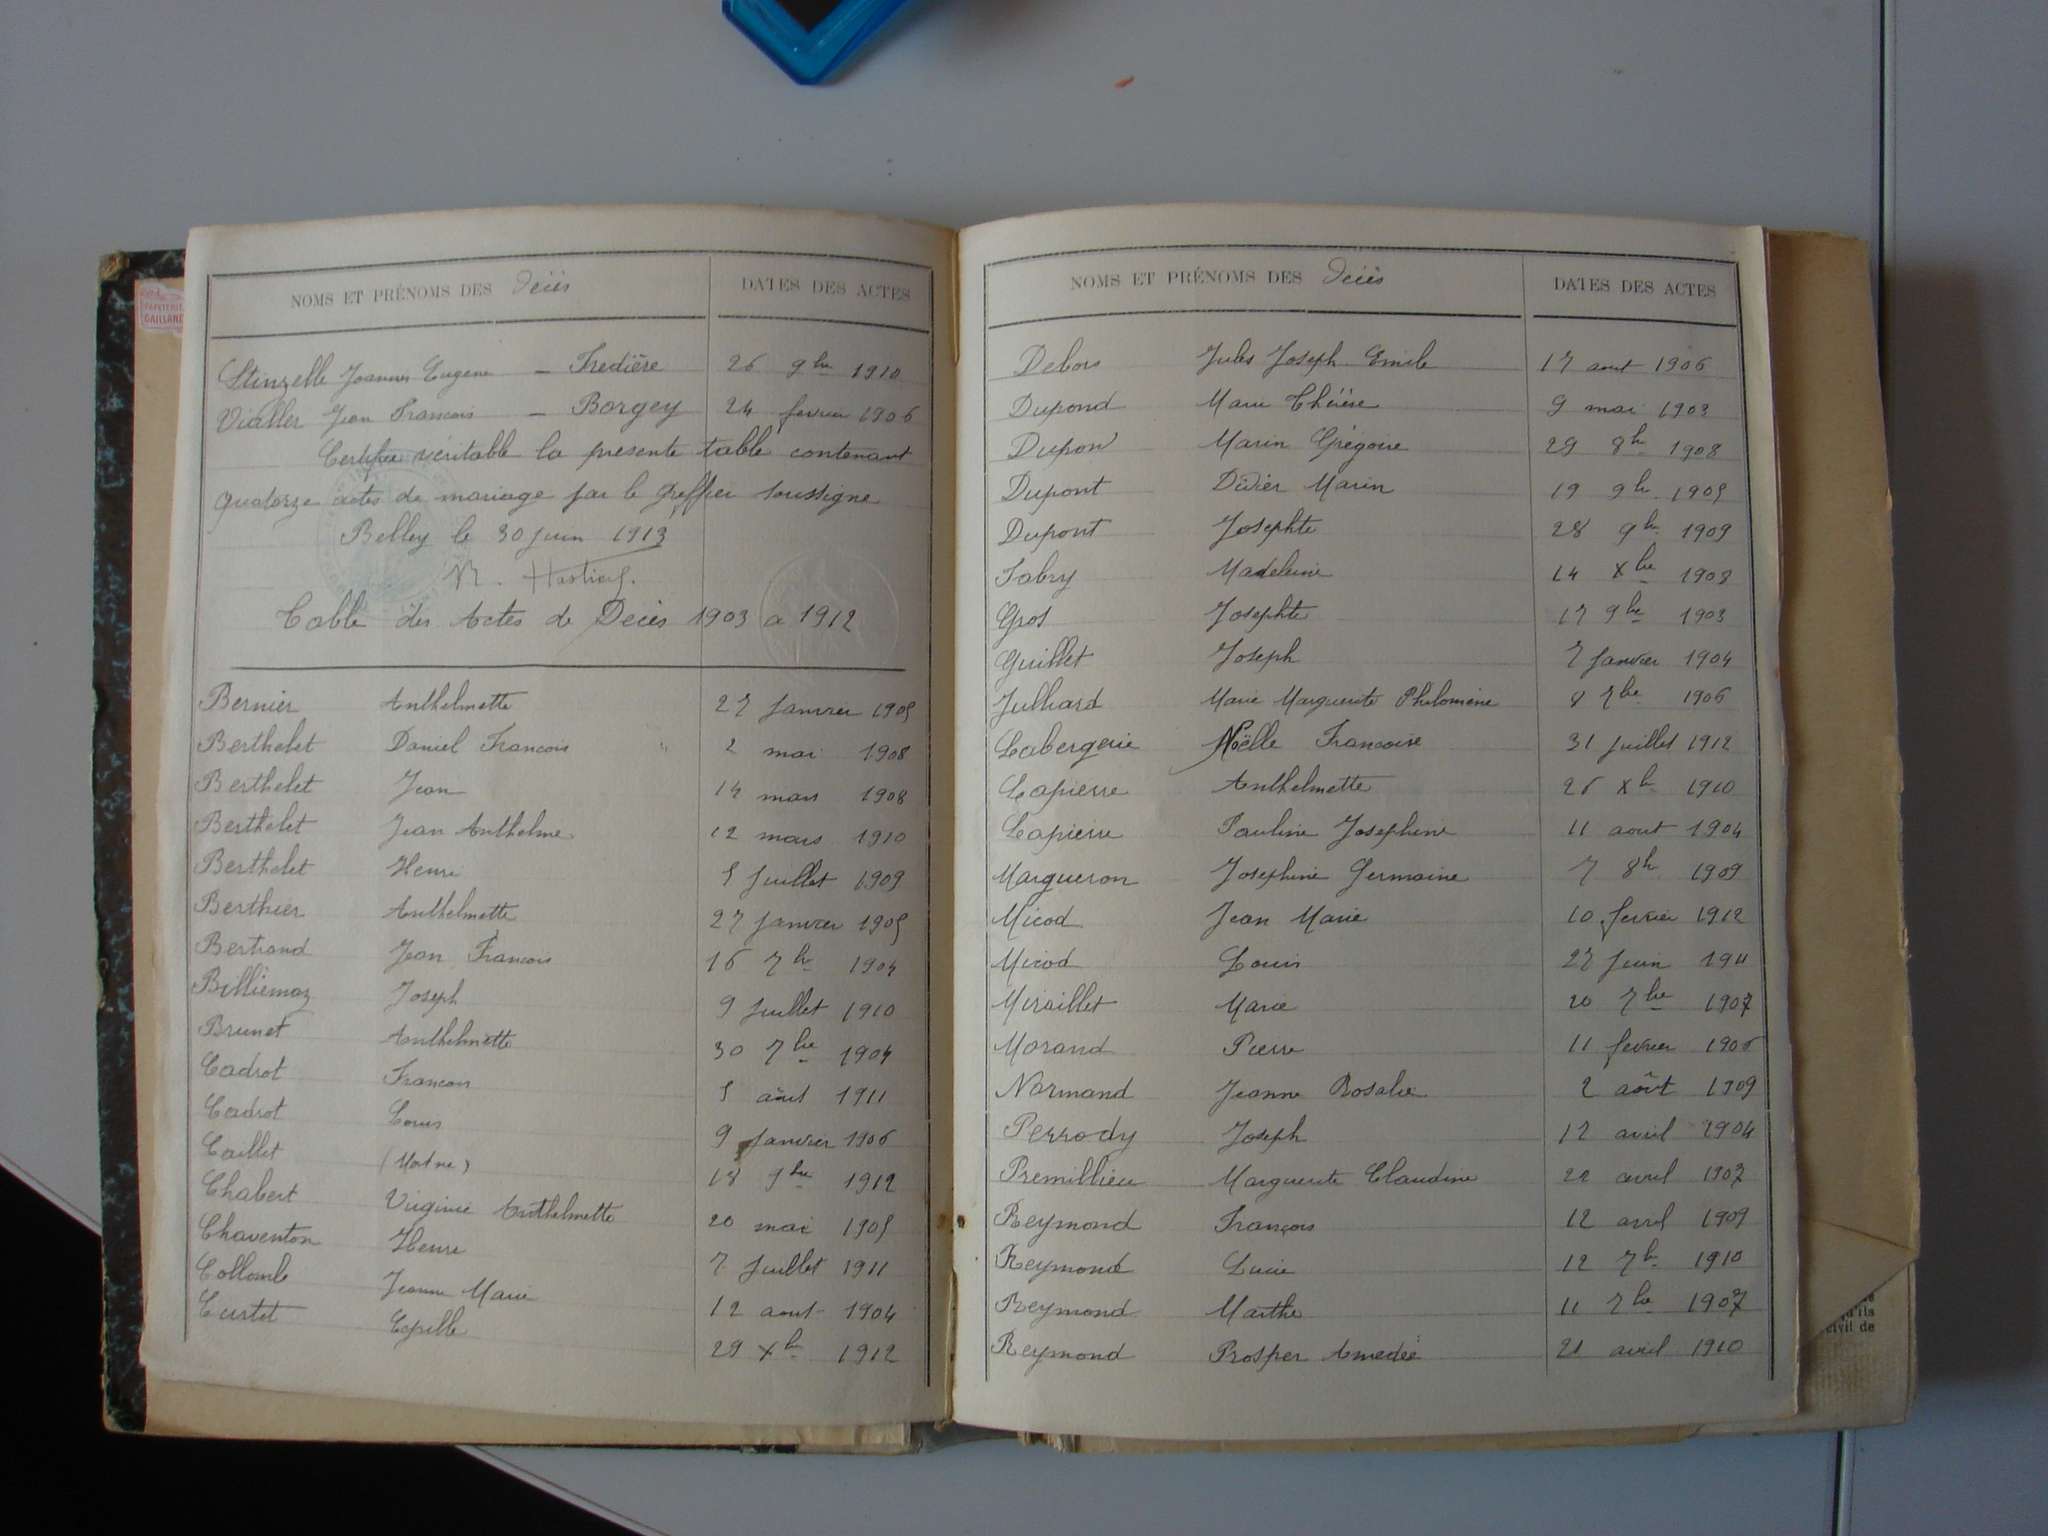 NOMS ET PRÉNOMS DES Décès DATES DES ACTES
Stinzelle Joannes Eugene – Fredière 26 9bre 1910
Viallet Jean Francois – Borgey 24 fevrier 1906
Certifiée véritable la presente table contenant
quatorze actes de mariage par le Greffier soussigne
Belley le 30 juin 1913
Table des Actes de Décès 1903 a 1912
Bernier Anthelmette 27 Janvier 1905
Berthelet Daniel Francois 2 mai 1908
Berthelet Jean 14 mars 1908
Berthelet Jean Anthelme 12 mars 1910
Berthelet Henri 5 Juillet 1909
Berthier Anthelmette 27 Janvier 1905
Bertrand Jean Francois 16 7bre 1904
Billiemaz Joseph 9 Juillet 1910
Brunet Anthelmette 30 7bre 1904
Cadrot Francois 5 août 1911
Cadrot Louis 9 Janvier 1906
Caillet (Mort né) 18 9bre 1912
Chabert Virginie Anthelmette 20 mai 1905
Chaventon Henri 7 Juillet 1911
Collomb Jeanne Marie 12 aout 1904
Curtet 29 Xbre 1912
PAPETERIE
GAILLAND
NOMS ET PRÉNOMS DES Décès DATES DES ACTES
Debois Jules Joseph Emile 17 aout 1906
Dupond Marie Thérèse 9 mai 1903
Dupont Marin Grégoire 29 8bre 1908
Dupont Didier Marin 19 9bre 1905
Dupont Josephte 28 9bre 1909
Fabry Madeleine 14 Xbre 1908
Gros Josephte 17 9bre 1903
Guillet Joseph 7 Janvier 1904
Julliard Marie Marguerite Philomène 8 7bre 1906
Labergerie Noëlle Francoise 31 Juillet 1912
Lapierre Anthelmette 26 Xbre 1910
Lapierre Pauline Josephine 11 aout 1904
Margueron Josephine Germaine 7 8bre 1909
Micod Jean Marie 10 fevrier 1912
Micod Louis 27 Juin 1911
Miraillet Marie 20 7bre 1907
Morand Pierre 11 fevrier 1906
Normand Jeanne Rosalie 2 août 1909
Perrody Joseph 12 avril 1904
Premillieu Marguerite Claudine 22 avril 1907
Reymond François 12 avril 1909
Reymond Lucie 12 7bre 1910
Reymond Marthe 11 7bre 1907
Reymond Prosper Amedée 21 avril 1910
qu'ils
civil de